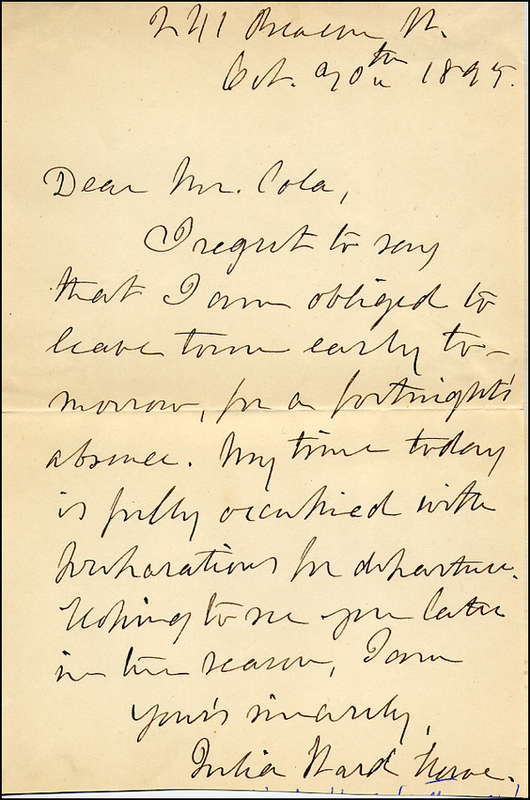 241 Beacon St.
Oct. 30th 1895.
Dear Mr. Cola,
I regret to say
that I am obliged to
leave town early to-
morrow, for a fortnight's
absence. My time today
is fully occupied with
preparations for departure.
Hoping to see you later
in the season, I am
yours sincerely,
Julia Ward Howe.